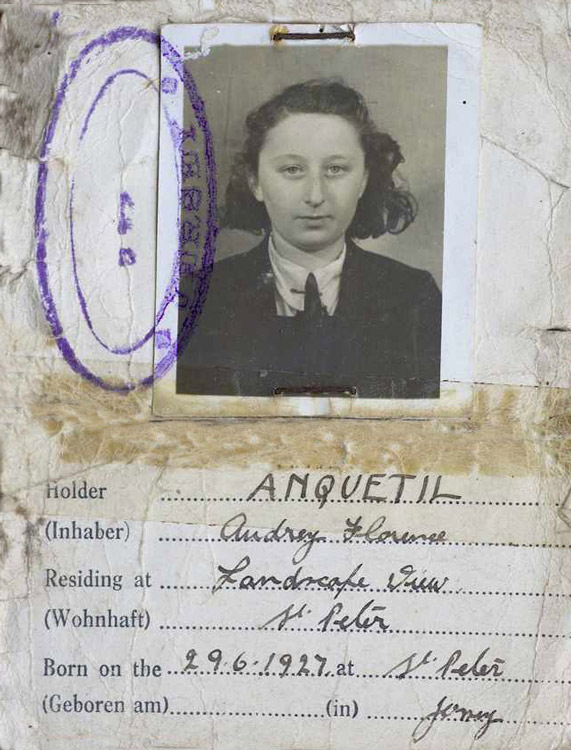 JERSEY
Holder ANQUETIL
(Inhaber) Audrey Florence
Residing at Landscape View
(Wohnhaft) St. Peter
Born on the 29.6.1927 at St. Peter
(Geboren am) (in) Jersey